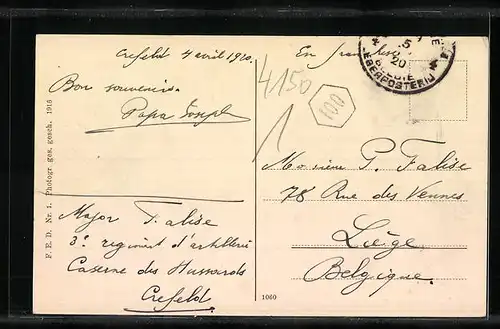 Crefeld 4 avril 1920.
Bon souvenir.
Papa Joseph
Major Falise
3e regiment d'artillerie
Caserne des Hussards
Crefeld.
F. E. D. Nr. 1. Photogr. ges. gesch. 1916
En franchise
4150
100
1
5
20
Monsieur P. Falise
78 Rue des Vennes
Liège
Belgique.
1060